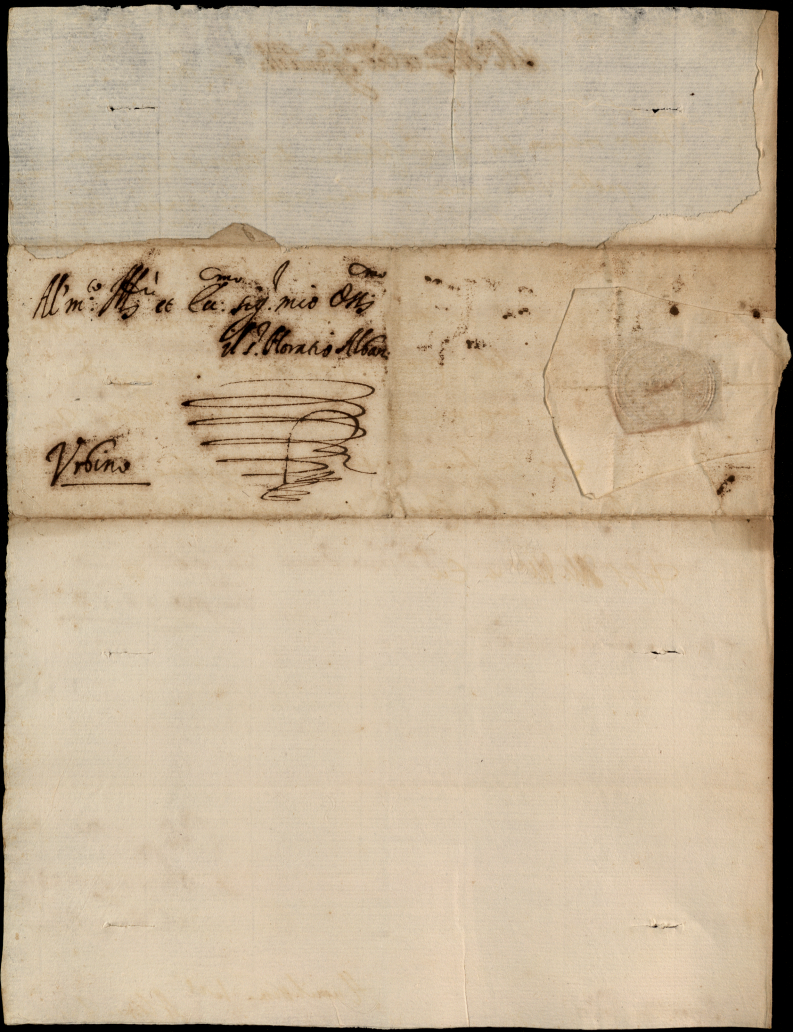 Al m.to Ill.ri et Ecc.mo sig.r mio Oss.mo
Il S.r Horatio Alban.
Vrbino